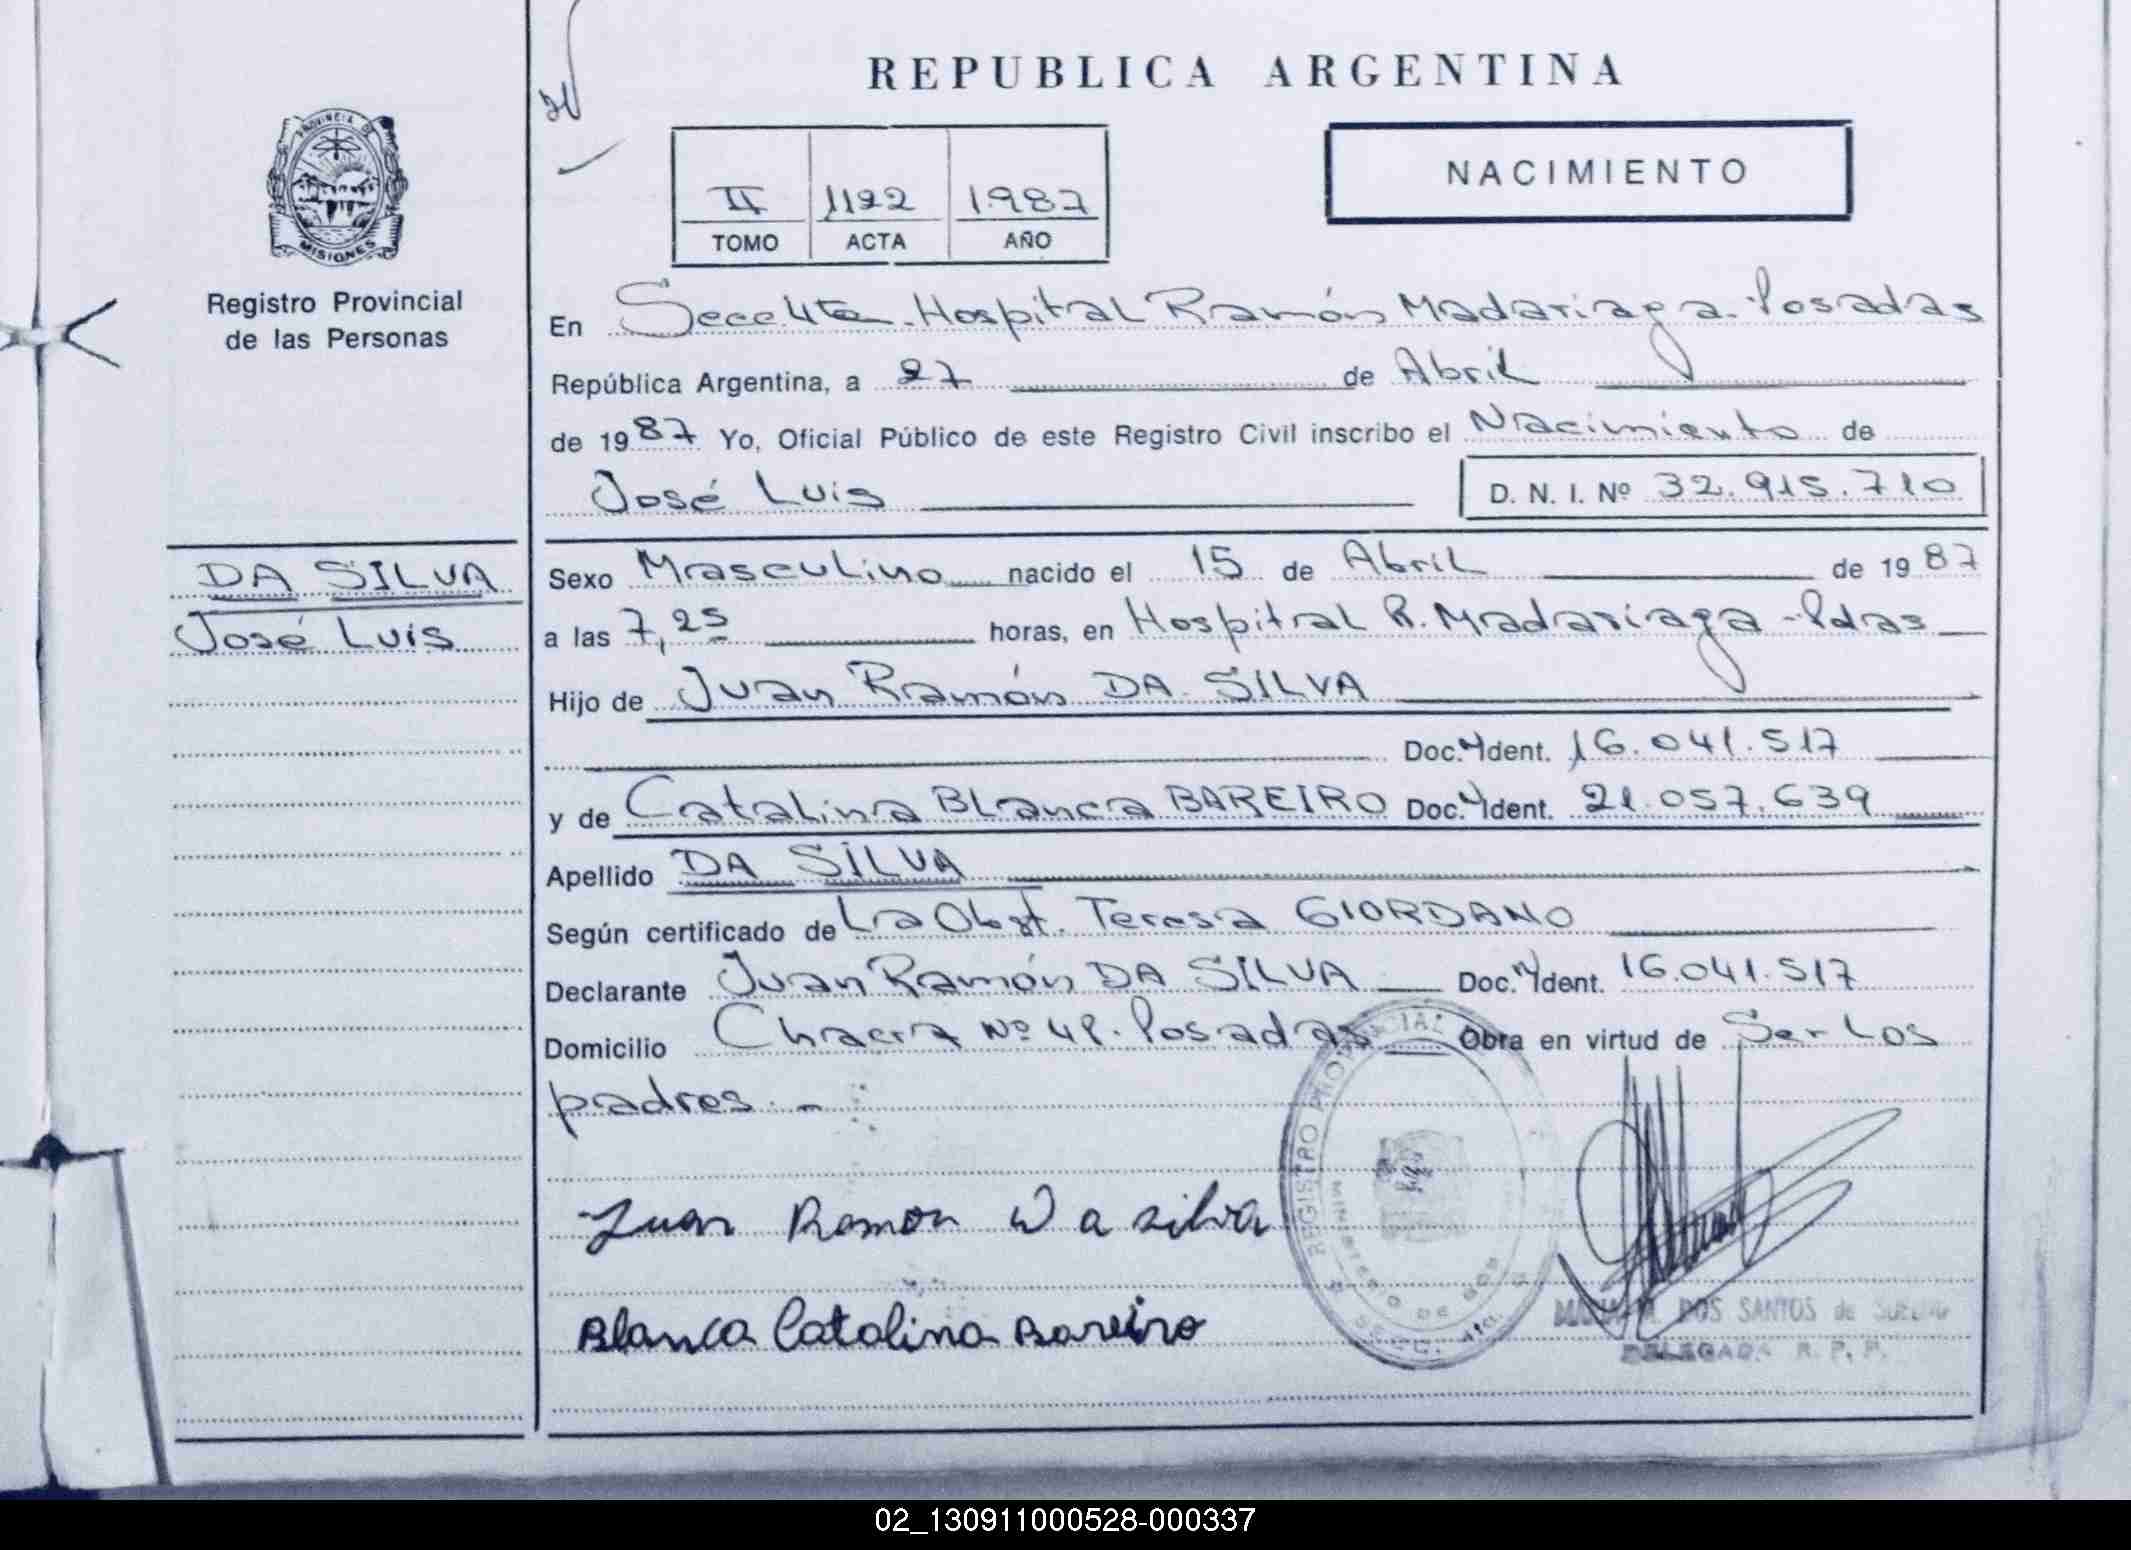 REPUBLICA ARGENTINA
PROVINCIA DE
MISIONES
Registro Provincial
de las Personas
NACIMIENTO
II 1122 1987
TOMO ACTA AÑO
En Hospital Ramón Madariaga - Posadas
República Argentina, a 27 de Abril
de 1987 Yo, Oficial Público de este Registro Civil inscribo el Nacimiento de
José Luis D. N. I. Nº 32.915.710
DA SILVA
José Luis
Sexo Masculino nacido el 15 de Abril de 1987
a las 7,25 horas, en Hospital R. Madariaga - Pdas
Hijo de Juan Ramón DA SILVA
Doc. Ident. 16.041.517
y de Catalina Blanca BAREIRO Doc. Ident. 21.057.639
Apellido DA SILVA
Según certificado de La Obst. Teresa GIORDANO
Declarante Juan Ramón DA SILVA Doc. Ident. 16.041.517
Domicilio Chacra Nº Posadas Obra en virtud de Ser Los
padres. -
REGISTRO PROVINCIAL
MINISTERIO DE GOB
Juan Ramon Da silva
Blanca Catalina Bareiro
DOS SANTOS de
DELEGADA R. P. P.
02_130911000528-000337